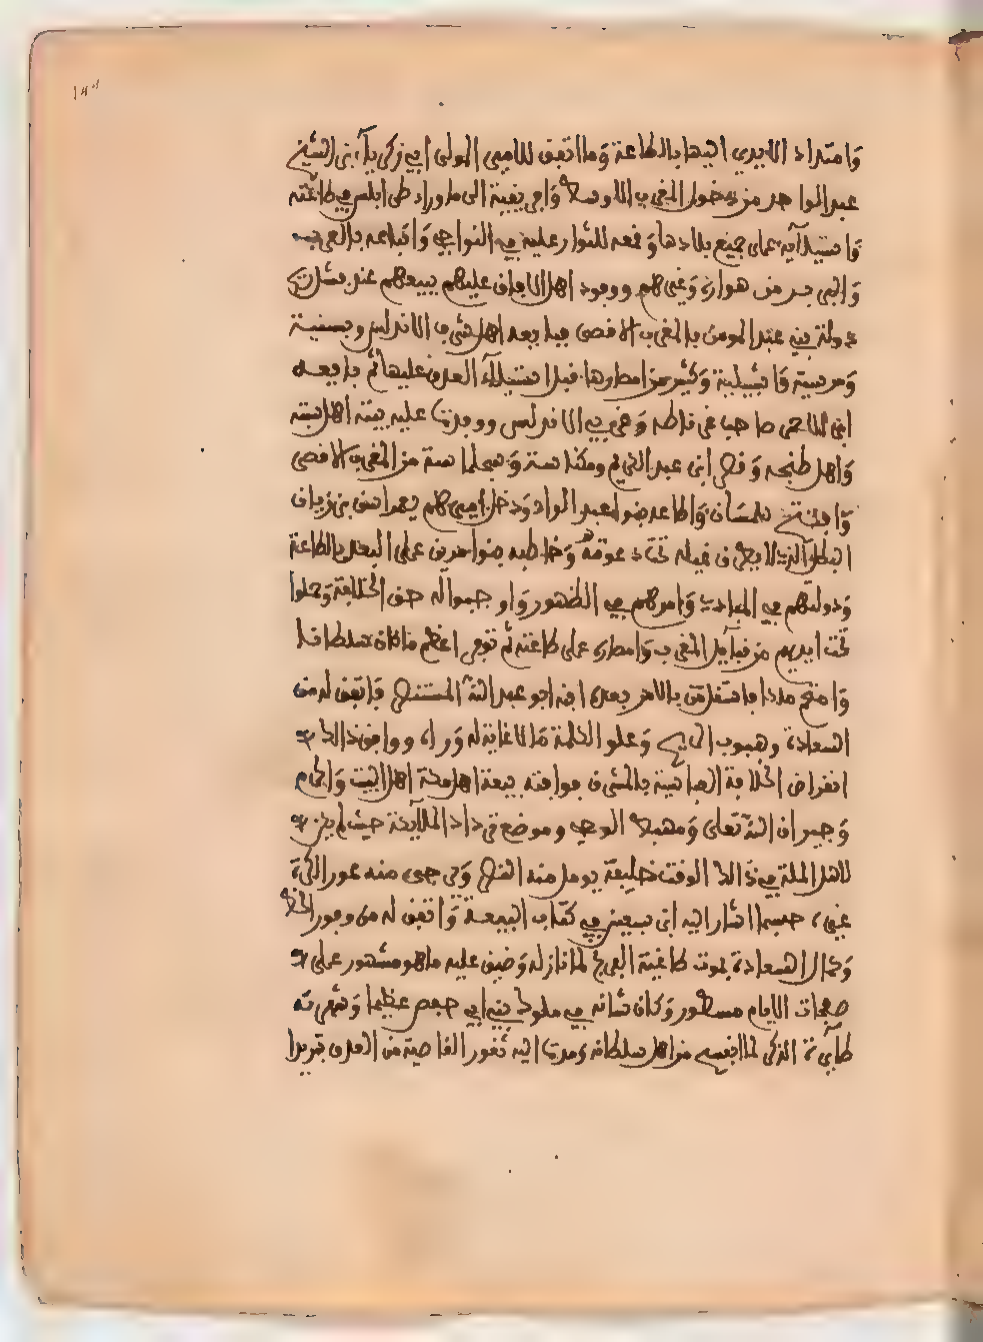 وامتداد الايدي اليها بالطاعة وما اتفق للامير المولى ابي زكرياء بن الشيخ
عبد الواحد من دخول المغرب الاوسط وافريقية الى ما وراء طرابلس في طاعته
واستيلائه على جميع بلادها وقمعه للثوار عليه في النواحي وايقاعه بالعرب
والبربر من هوارة وغيرهم ووفود اهل الافاق عليهم ببيعهم عند
دولة بني عبد المومن بالمغرب الاقصى فبايعه اهل شرق الاندلس وبلنسية
ومرسية واشبيلية وكثير من امصارها قبل استيلاء العدو عليها ثم بايعه
ابن الاحمر صاحب غرناطة وغربي الاندلس ووردت عليه بيعة اهل سبتة
واهل طنجة وقصر ابن عبد الكريم ومكناسة وسجلماسة من المغرب الاقصى
وافتتح تلمسان واطاعه بنو عبد الواد ودخل اميرهم يغمراسن بن زيان
البطل الذي لا تحت دعوته وخاطبه بنو مرين على البعد بالطاعة
ودولتهم في المبادي وامرهم في الظهور واوجبوا له حق الخلافة وحملوا
تحت ايديهم من قبائل المغرب وامصاره على طاعته ثم توفي اعظم ما كان سلطانا
وافخم ملكا فاستقل بالامر بعده ابنه ابو عبد الله المستنصر فاتفق له من
السعادة وهبوب الريح وعلو الكلمة ما لا غاية له وراءه ووافق ذلك
انقراض الخلافة العباسية بالمشرق فوافته بيعة اهل مكة اهل البيت والحرم
وجيران الله تعالى ومهبط الوحي وموضع الملائكة حيث لم يكن
لاهل الملة في ذالك الوقت خليفة يومل منه النصر ويرجى منه عود الكرة
غيره حسبما اشار اليه ابن سبعين في كتاب البيعة واتفق له من وفور
وكمال السعادة بموت طاغية الفرنج لما نازله وضيق عليه ما هو مشهور على
صفحات الايام مسطور وكان شانه في ملوك بني ابي حفص عظيما وشهرته
طائرة الذكر لما من اهل سلطانه ومدت اليه ثغور القاصية من العدو